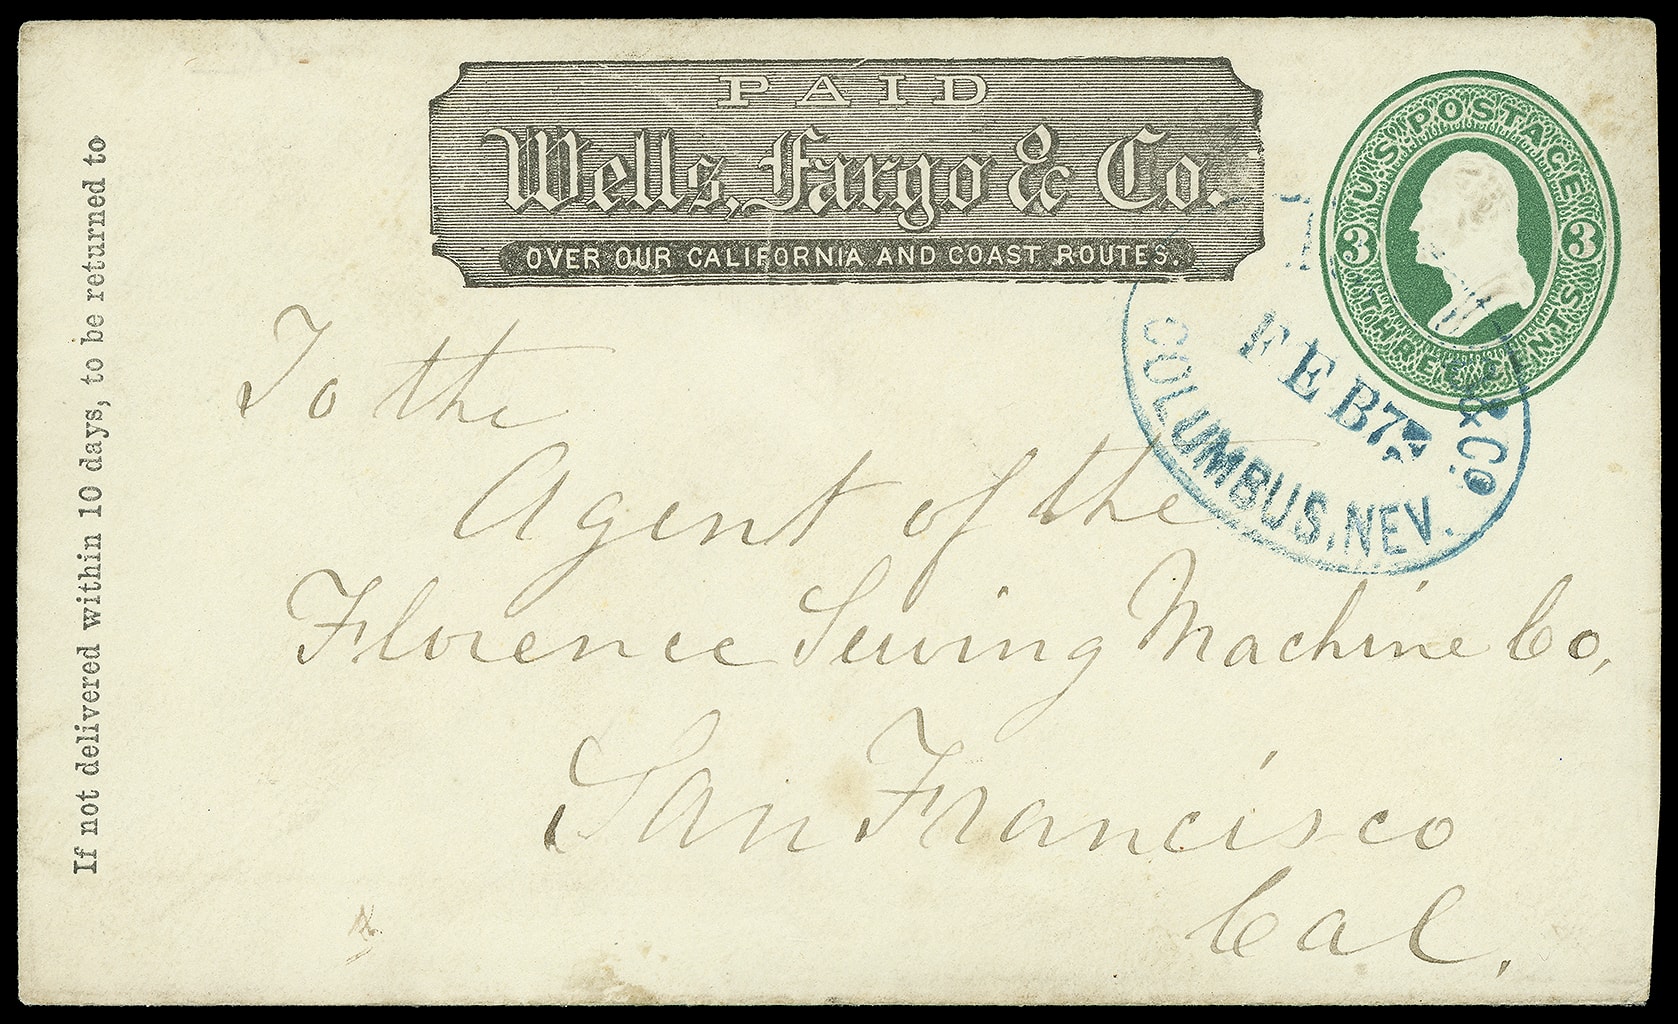 PAID
Wells, Fargo & Co.
OVER OUR CALIFORNIA AND COAST ROUTES.
U.S. POSTAGE
3 3
THREE CENTS
& Co
FEB 7
COLUMBUS, NEV.
If not delivered within 10 days, to be returned to
To the
Agent of the
Florence Sewing Machine Co,
San Francisco
Cal.